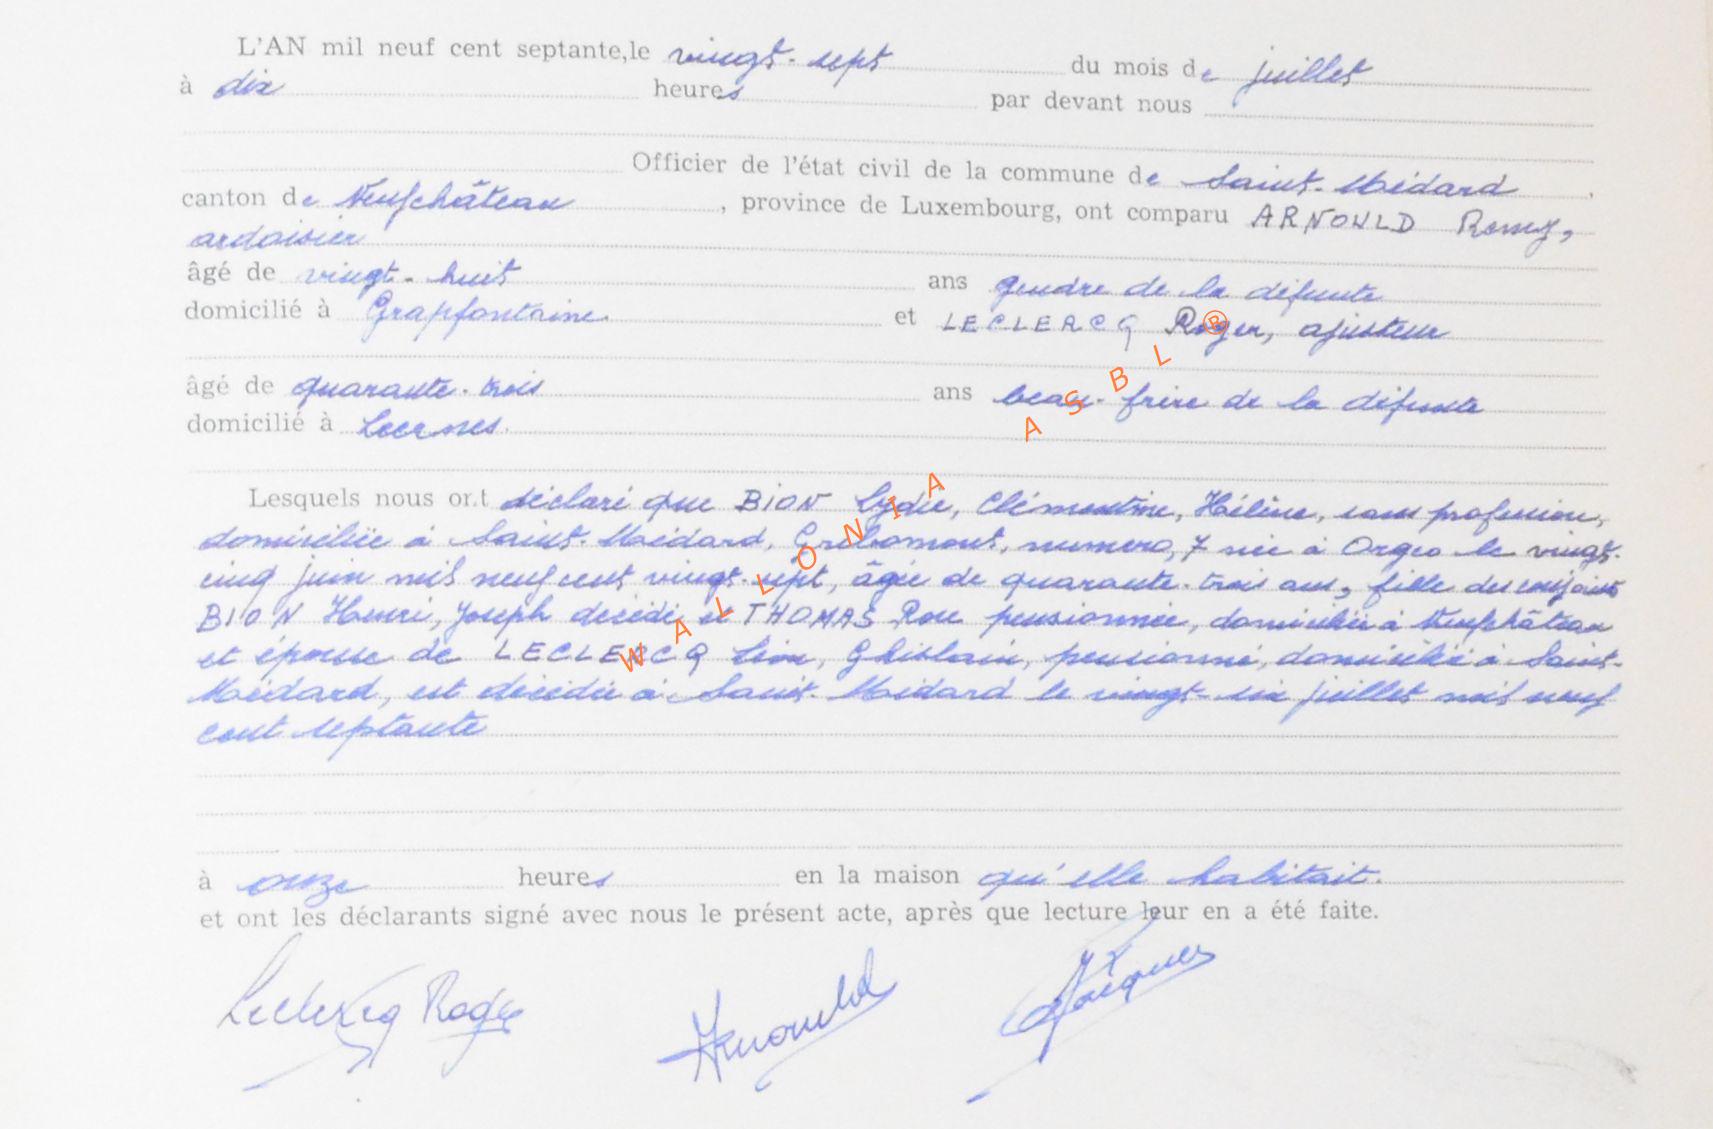 L'AN mil neuf cent septante, le vingt-sept du mois de juillet
à dix heures par devant nous
Officier de l'état civil de la commune de Saint-Médard,
canton de Neufchâteau, province de Luxembourg, ont comparu ARNOULD Remy,
ardoisier
âgé de vingt-huit ans gendre de la défunte
domicilié à Grapfontaine et LECLERCQ Roger, ajusteur
âgé de quarante-trois ans beau-frère de la défunte
domicilié à Leernes.
Lesquels nous ont déclaré que BION Lydie, Clémentine, Hélène, sans profession,
domiciliée à Saint-Médard, Gribomont, numéro, 7 née à Orgeo le vingt-
cinq juin mil neuf cent vingt-sept, âgée de quarante-trois ans, fille des conjoints
BION Henri, Joseph décédé et THOMAS Rose pensionnée, domiciliée à Neufchâteau
et épouse de LECLERCQ Léon, Ghislain, pensionné, domicilié à Saint-
Médard, est décédée à Saint-Médard le vingt-six juillet mil neuf
cent septante
à onze heures en la maison qu'elle habitait.
et ont les déclarants signé avec nous le présent acte, après que lecture leur en a été faite.
Leclercq Roger Arnould Jacques
WALLONIA ASBL ®